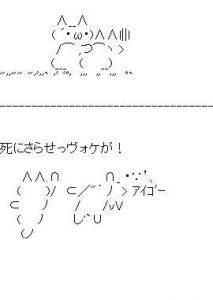 ∧__∧
( ´･ω･)∧∧l||l
/⌒ ,つ⌒ヽ )
(___ (  __)
"''"" "''"'゛''' ゛゜' ''' '' ''' ゜ ゜
------------------------------------
死にさらせっヴォケが！
∧∧.∩    ∩_ ･∵’、
(   )/ ⊂／"´ ﾉ > ｱｲｺﾞｰ
⊂  ﾉ   /   /vV
(  ﾉ   し'`∪
(ノ